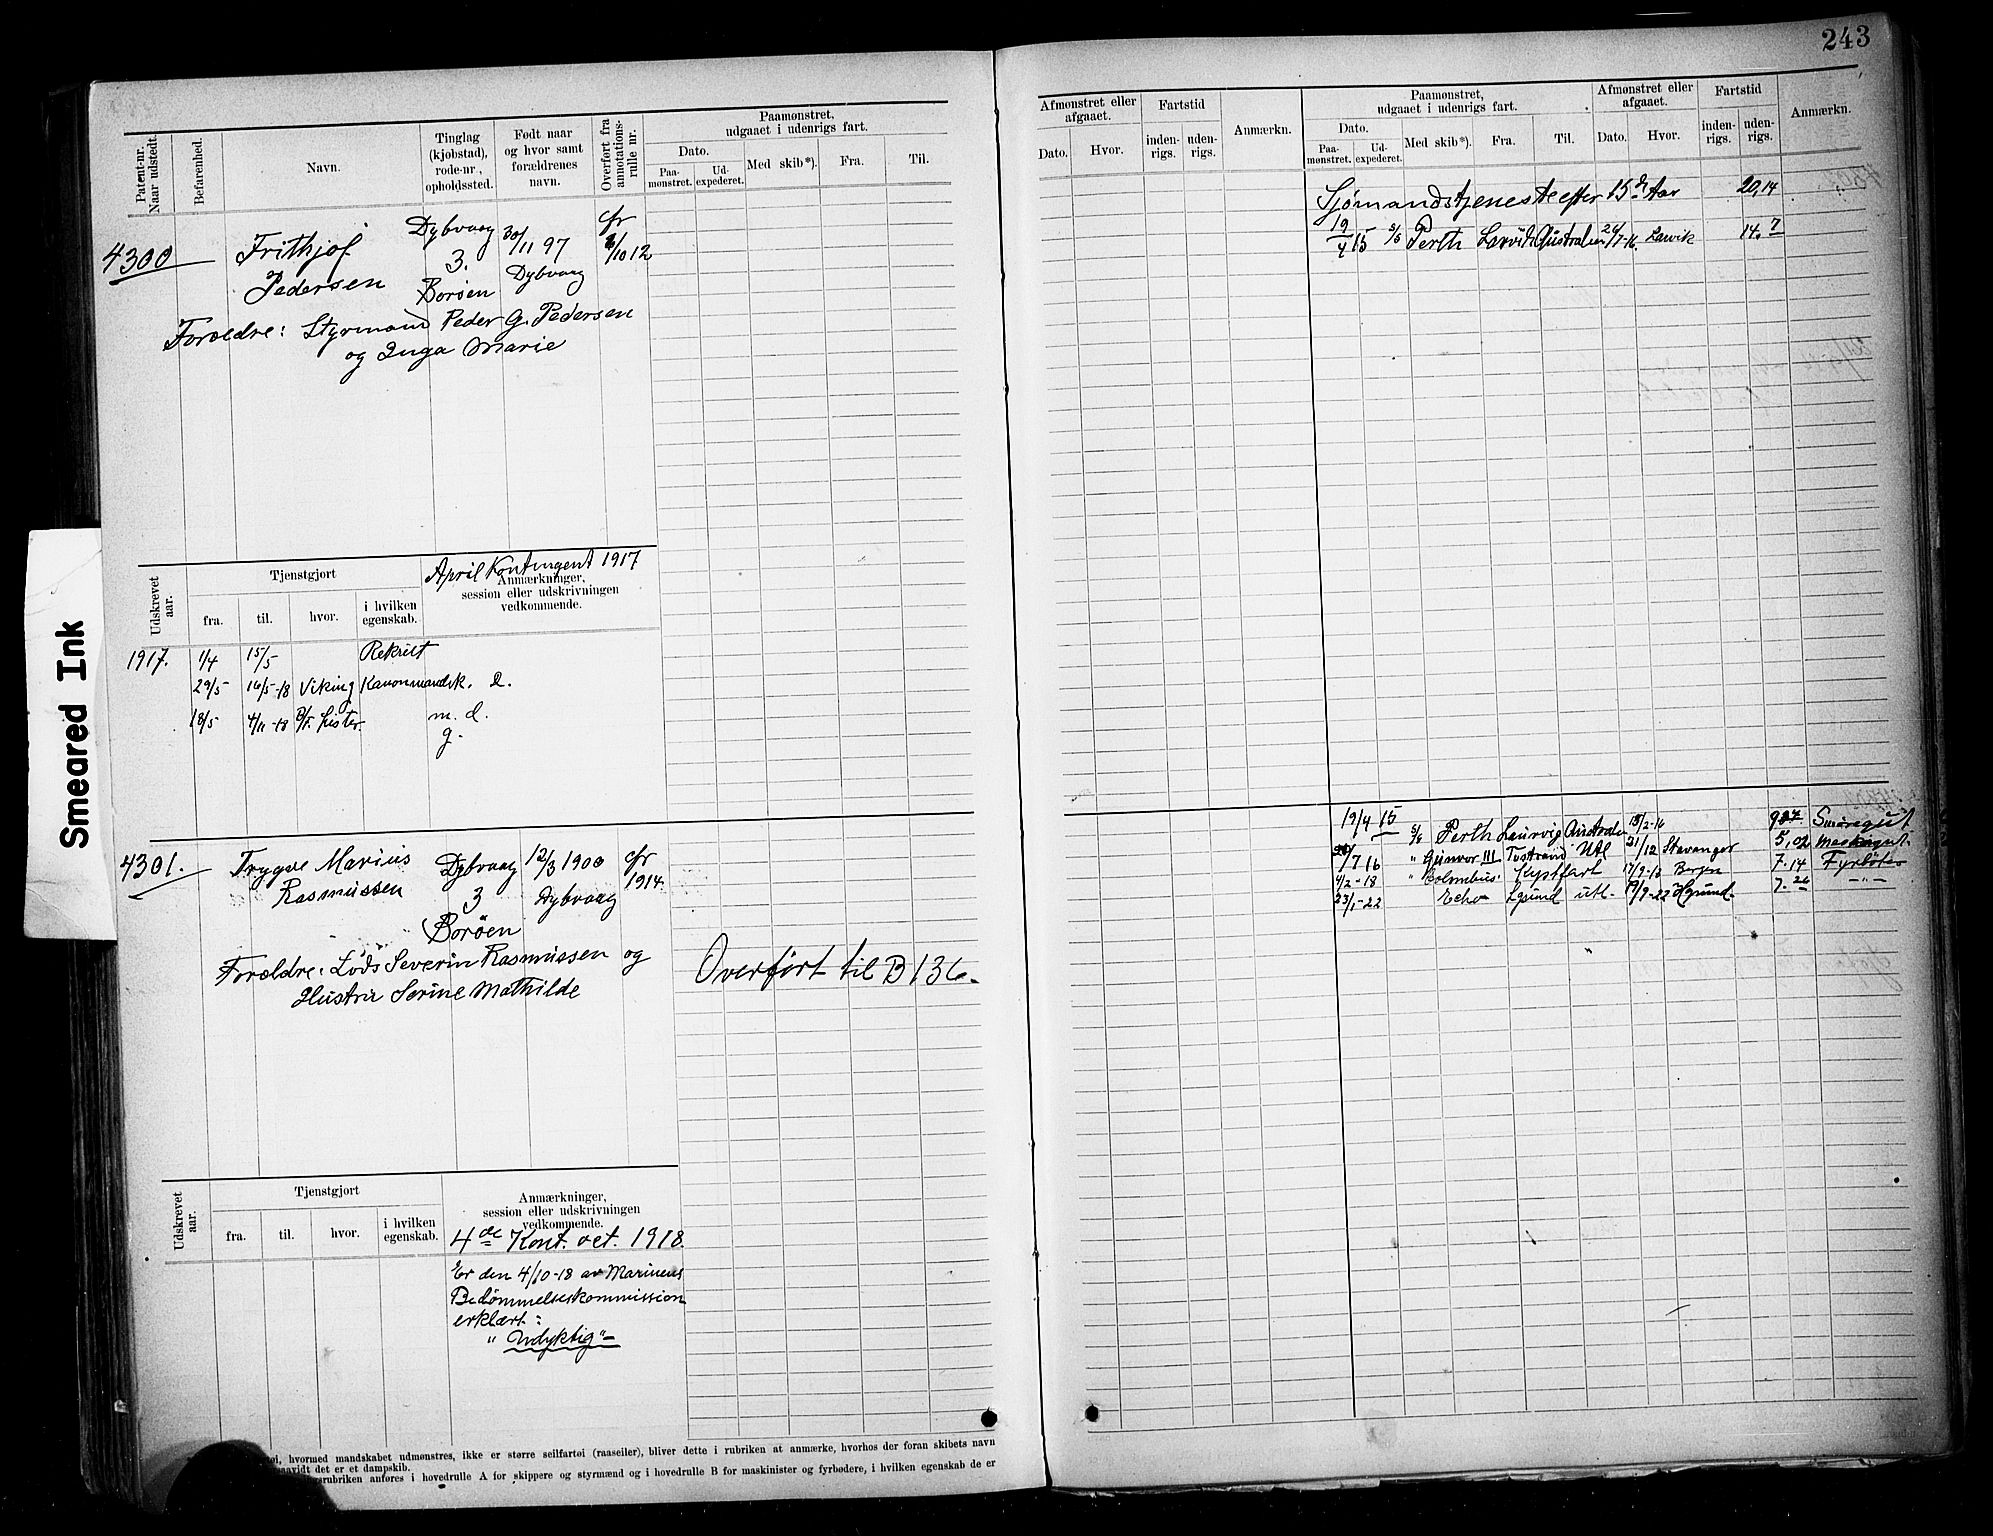 243
Patent-nr.
Naar udstedt.
Befarenhed.
Navn.
Tinglag
(kjøbstad),
rode-nr.,
opholdssted.
Født naar
og hvor samt
forældrenes
navn.
Overført fra
annotations-
rulle nr.
Paamønstret,
udgaaet i udenrigs fart.
Dato.
Paa-
mønstret.
Ud-
expederet.
Med skib*).
Fra.
Til.
4300
Frithjof
Pedersen
Dybvaag
3.
Borøen
30/11 97
Dybvaag
cfr
/10 12
Forældre: Styrmand Peder G. Pedersen
og Inga Marie
Udskrevet
aar.
Tjenstgjort
fra.
til.
hvor.
i hvilken
egenskab.
April Kontingent 1917
Anmærkninger,
session eller udskrivningen
vedkommende.
1917. 1/4 15/5 Rekrut
29/5 16/5-18 Viking Kanonmandsk. d.
18/5 4/11-18 Lister m. d.
g.
Smeared Ink
4301.
Trygve Marius
Rasmussen
Dybvaag
3
Borøen
12/3 1900
Dybvaag
cfr
1914.
Forældre: Lods Severin Rasmussen og
Hustru Serine Mathilde
Overført til B 136.
Udskrevet
aar.
Tjenstgjort
fra.
til.
hvor.
i hvilken
egenskab.
Anmærkninger,
session eller udskrivningen
vedkommende.
4de Kont. oct. 1918.
Er den 4/10-18 av Marinens
Bedømmelseskommission
erklært:
"Udyktig"
hvormed mandskabet udmønstres, ikke er større seilfartøi (raaseiler), bliver dette i rubriken at anmærke, hvorhos der foran skibets navn
saavidt det er et dampskib.
rubriken anføres i hovedrulle A for skippere og styrmænd og i hovedrulle B for maskinister og fyrbødere, i hvilken egenskab de er
Afmønstret eller
afgaaet.
Dato.
Hvor.
Fartstid
inden-
rigs.
uden-
rigs.
Anmærkn.
Paamønstret,
udgaaet i udenrigs fart.
Dato.
Paa-
mønstret.
Ud-
expederet.
Med skib*).
Fra.
Til.
Afmønstret eller
afgaaet.
Dato.
Hvor.
Fartstid
inden-
rigs.
uden-
rigs.
Anmærkn.
Sjømandstjeneste efter 15 Aar 20,14
19/4 15 s/s Perth Larvik Australien 24/7-16 Larvik 14.7
19/4 15 s/s Perth Laurvig Australien /2-16 Smøregut
/7 16 " Gunvor III Tvstrand Utl 21/12 Stavanger 5,02
4/2-18 " Columbus Kystfart 17/9-18 Bergen 7.14 Fyrbøter
23/1-22 Echo Egsund utl. 19/9-22 7.26 -"-